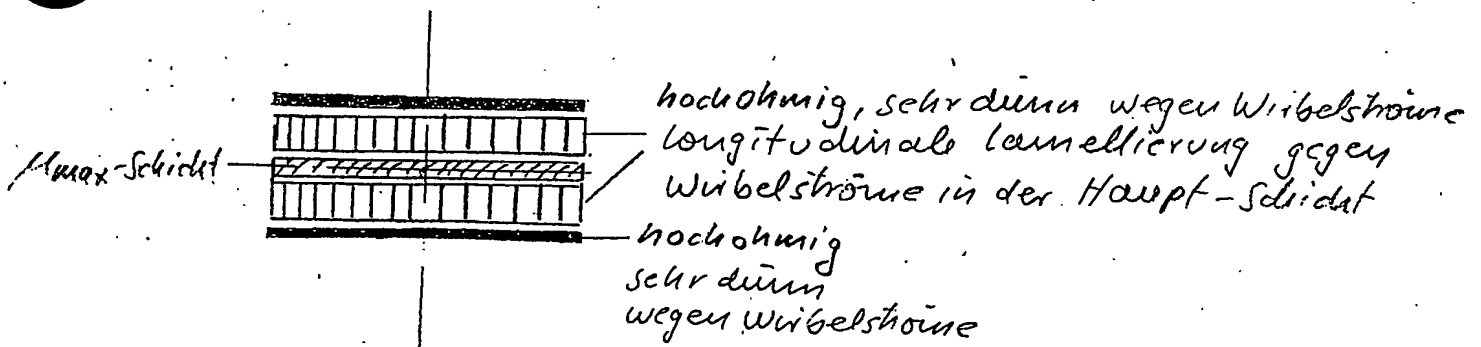 hochohmig, sehr dünn wegen Wirbelströme
μmax-Schicht
longitudinale lamellierung gegen
Wirbelströme in der Haupt-Schicht
hochohmig
sehr dünn
wegen Wirbelströme